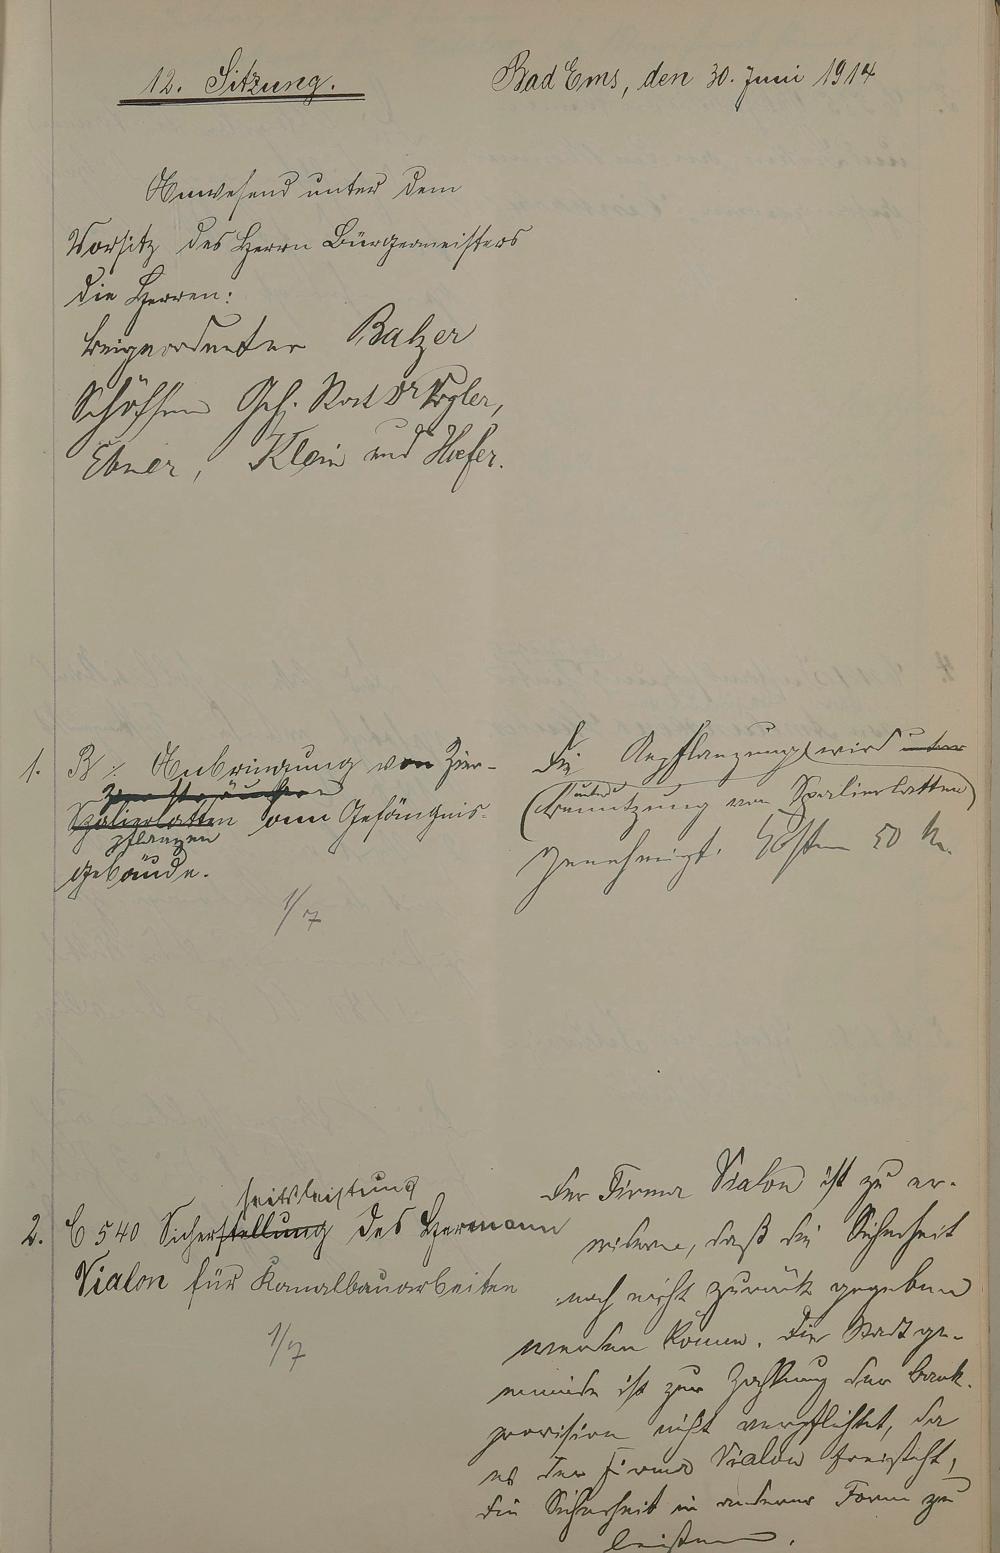 12. Sitzung.
Bad Ems, den 30. Juni 1914
Anwesend unter dem
Vorsitz des Herrn Bürgermeisters
die Herren:
Beigeordneter Balzer
Schöffen Geh. Rat Dr Vogler,
Ebner, Klein und Hoefer.
1. B /. Anbringung von Zier-
Ziersträuchern
Spalierlatten am Gefängnis-
pflanzen
gebäude.
1/7
Die Anpflanzung wird unter
unter
(Benutzung von Spalierlatten)
genehmigt. Kosten 50 M.
heitsleistung
2. C 540 Sicherstellung des Hermann
Vialon für Kanalbauarbeiten
1/7
Der Firma Vialon ist zu er-
widern, daß die Sicherheit
noch nicht zurück gegeben
werden könne. Die Stadtge-
meinde ist zur Zahlung der Bank-
provision nicht verpflichtet, da
es der Firma Vialon freisteht,
die Sicherheit in anderer Form zu
leisten.